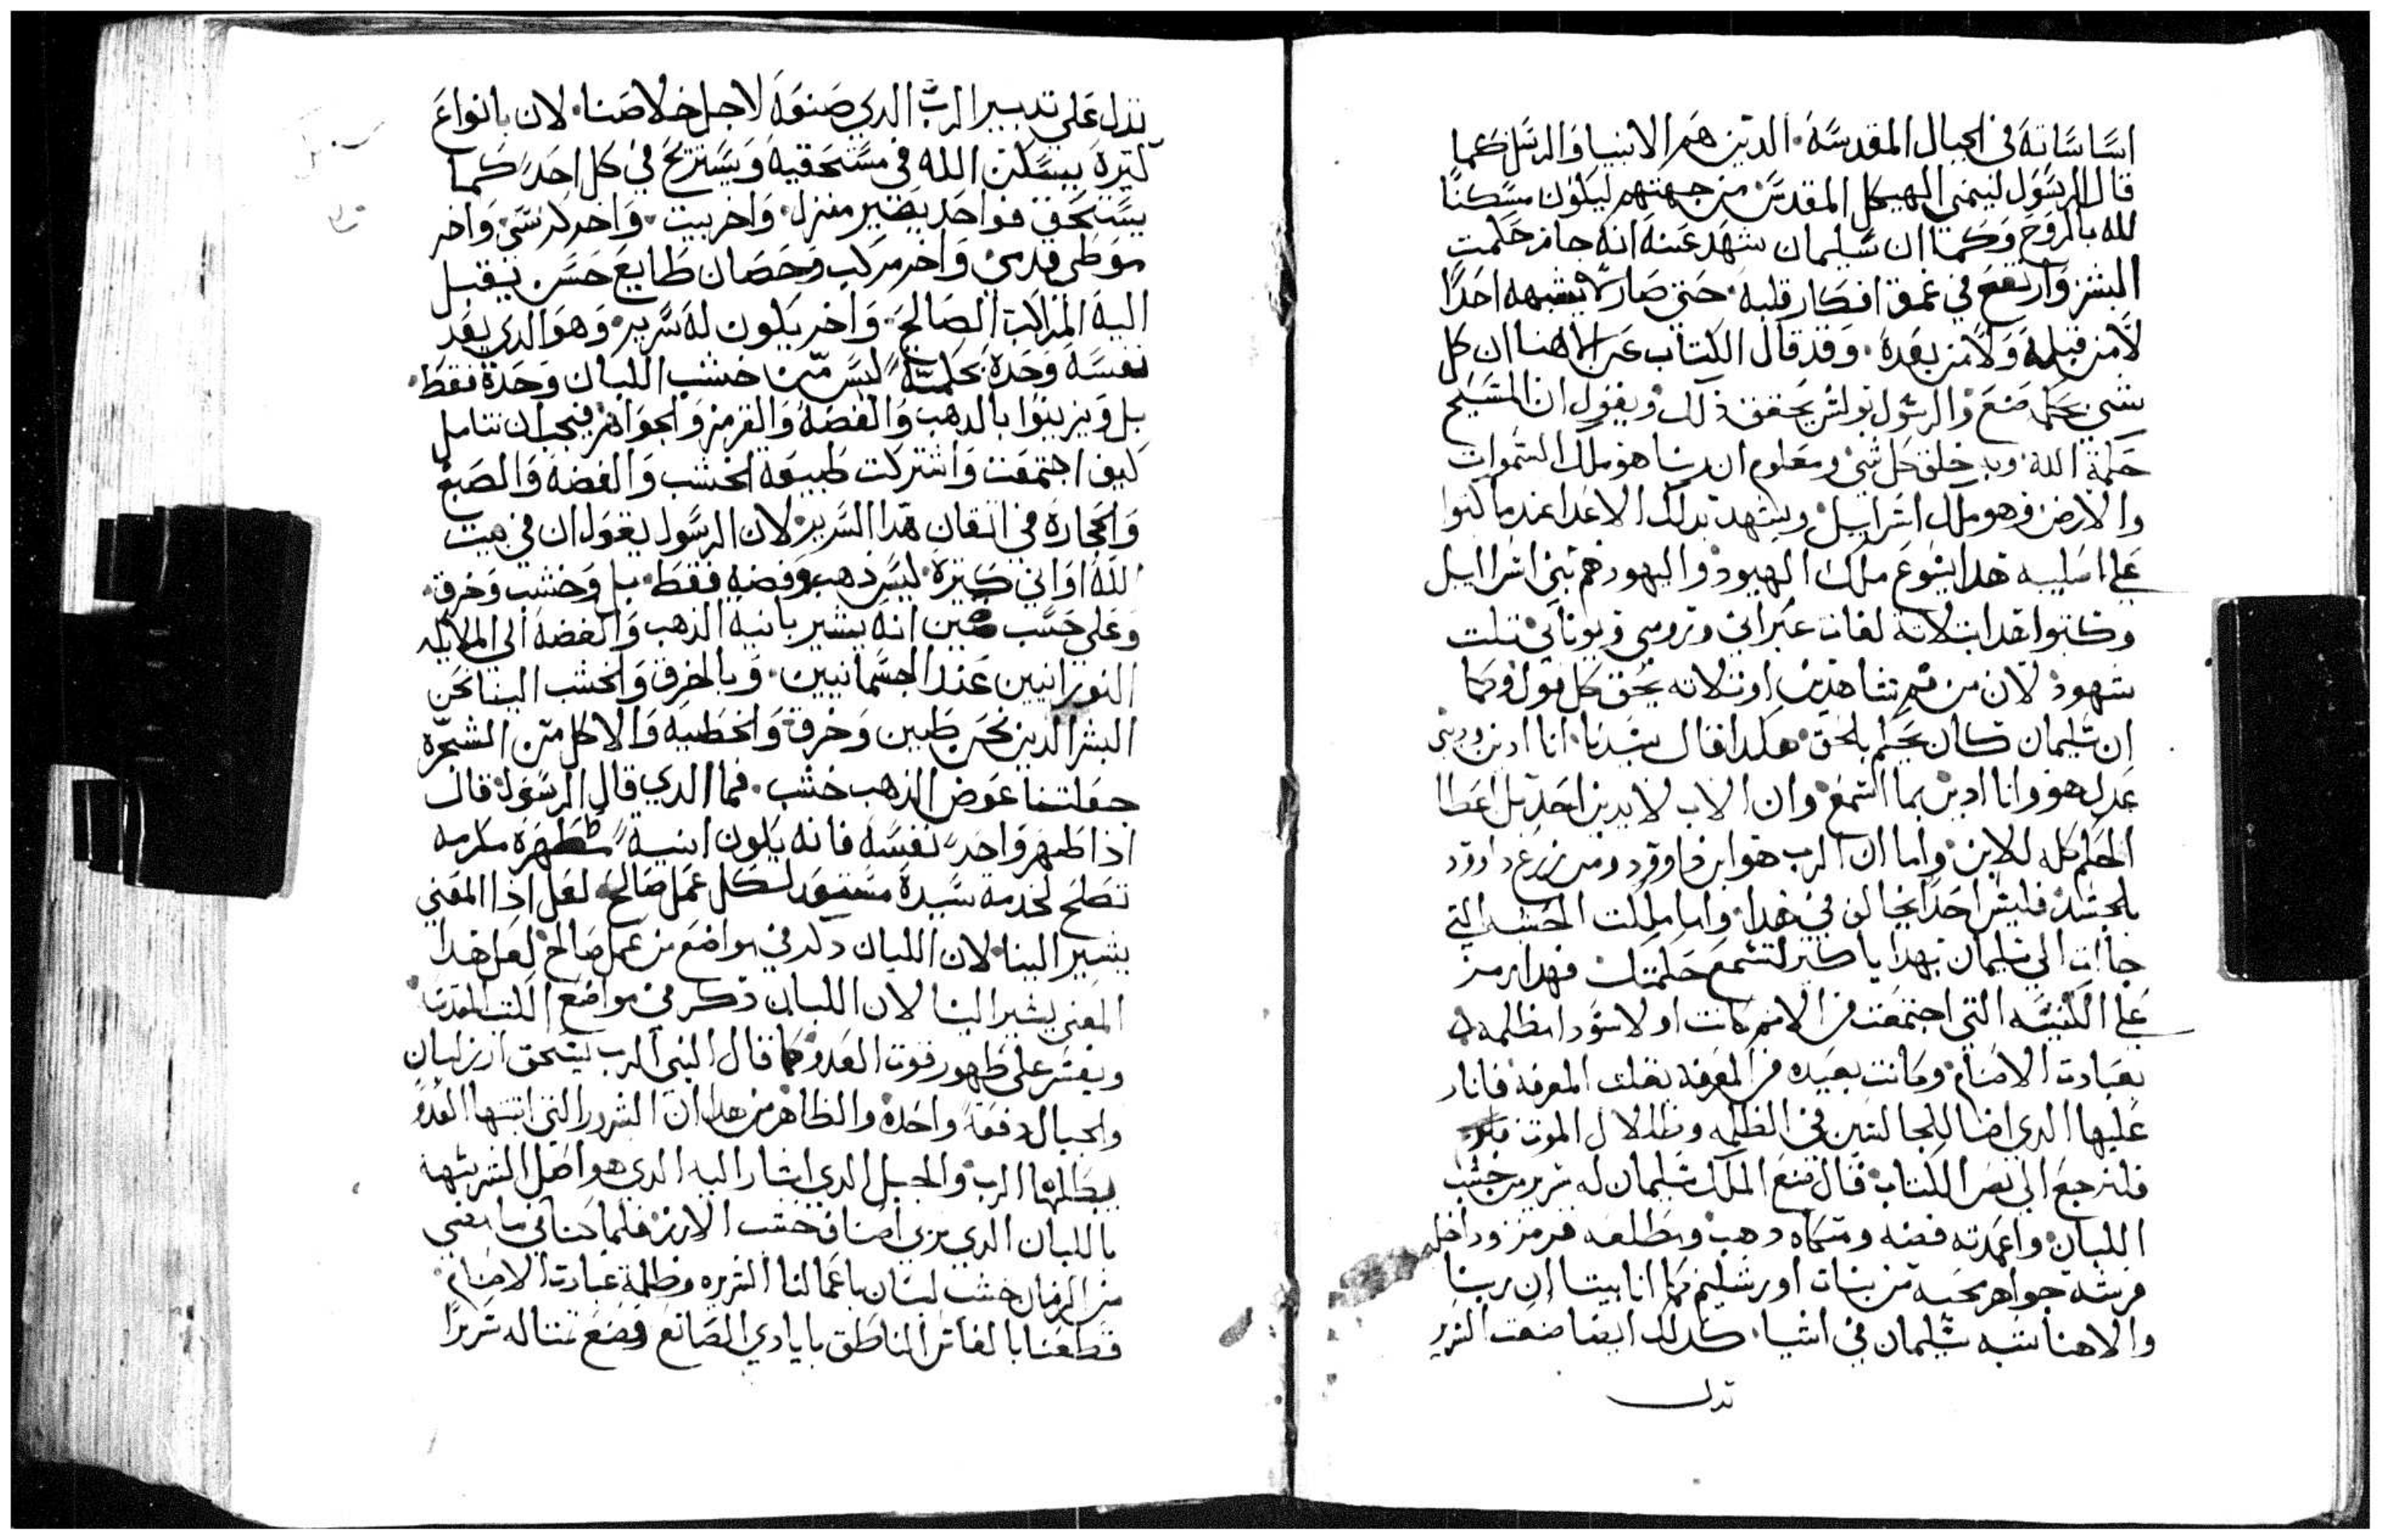 اساساته في الجبال المقدسه الدين هم الانبيا والرسل كما
قال الرسول لينمي الهيكل المقدس من جهتهم ليكون مسكنا
لله بالروح وكما ان سليمان شهد عنه انه جاز حكمت
البشر وارتفع في عمق افكار قلبه حتي صار لا يشبهه احدا
لا من قبله ولا من بعده وقد قال الكتاب عن الاهنا ان كل
شي بحكمه صنع والرسول بولس يحقق ذلك ويقول ان المسيح
حكمة الله وبه خلق كل شي ومعلوم ان ربنا هو ملك السموات
والارض وهو ملك اسراييل ويشهد بدلك الاعدا عندما كتبوا
علي اسليبه هدا يسوع ملك اليهود واليهود هم بني اسراييل
وكتبوا هدا بتلاتة لغات عبراني ورومي ويوناني تلت
شهود لان من فم شاهدين او تلاته يحق كل قول وكما
ان سليمان كان يحكم بالحق هكدا قال سيدنا انا ادين وديني
عدل هو وانا ادين بما اسمع وان الاب لا يدين احد بل اعطا
الحكم كله للابن واما ان الرب هو ابن داوود ومن زرع داوود
بالجسد فليس احدا يخالف في هدا واما ملكت الحبشه التي
جاات الي سليمان بهدايا كتير لتسمع حكمتك فهدا رمز
علي الكنيسه التي اجتمعت من الامم كانت اولا سودا مظلمه
بعبادت الاصنام وكانت بعيده من المعرفه بتلك المعرفه فانار
عليها الدي اضا للجالسين في الظلمه وظلال الموت
فلنرجع الي نص الكتاب قال صنع الملك سليمان له سرير من خشب
اللبان واعمدته فضه ومتكاه دهب ومطلعه قرمز وداخله
فرشه جواهر محبه من بنات اورشليم كما اننا بينا ان ربنا
والاهنا شبه سليمان في اشيا كدلك ايضا صنعت السرير
تدل
تدل علي تدبير الرب الدي صنعه لاجل خلاصنا لان بانواع
كتيرة يسكن الله في مستحقيه ويستريح في كل احد كما
يستحق فواحد يصير منزل واخر بيت واخر كرسي واخر
موطي قدمي واخر مركب وحصان طايع حسن يقبل
اليه الراكب الصالح واخر يكون له سرير وهو الدي يعد
نفسه وحده بحكمته ليس من خشب اللبان وحده فقط
بل ويزينوا بالدهب والفضه والقرمز والجواهر فيجب ان نتامل
كيف اجتمعت واشتركت طبيعة الخشب والفضه والصبغ
والحجاره في اتقان هدا السرير لان الرسول يقول ان في بيت
الله اواني كتيرة ليس دهب وفضه فقط بل وخشب وخرف
وعلي حسب انه يشير بانية الدهب والفضه الي الملايكه
النورانيين عند الجسمانيين وبالخرف والخشب الينا نحن
البشر الدين نحن طين وخرف والخطيه والاكل من الشجره
جعلتنا عوض الدهب خشب فما الدي قال الرسول قال
ادا طهر واحد نفسه فانه يكون انية مطهره مكرمه
تصلح لخدمة سيده مستعد لكل عمل صالح لعل ادا المعني
يشير الينا لان اللبان دكر في مواضع من عمل صالح لعل هدا
المعني يشير الينا لان اللبان دكر في مواضع الكتب المقدسه
ويفسر علي ظهور قوت العدو كما قال النبي الرب يسحق ارز لبان
والجبال دفعة واحده والظاهر من هدا ان الشرور التي انبتها العدو
يبطلها الرب والجبل الدي اشار اليه الدي هو اصل الشر يشبهه
باللبان الدي يربي اصناف خشب الارز فلما كنا في ما مضي
من الزمان خشب لبنان باعمالنا الشريره وظلمة عبادت الاصنام
قطعنا بالفاس الناطق بايادي الصانع وصنع مننا له سريرا